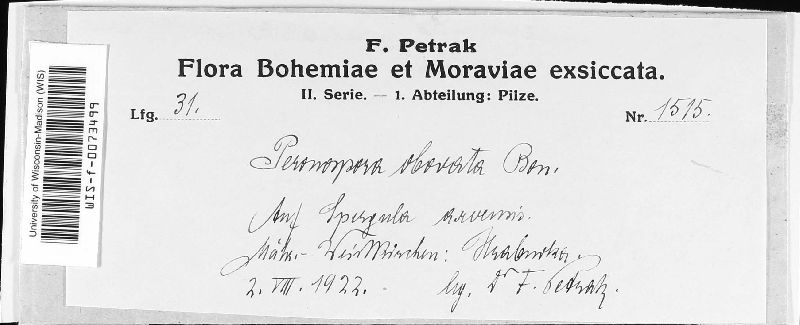 University of Wisconsin-Madison (WIS)
WIS-f-0073499
F. Petrak
Flora Bohemiae et Moraviae exsiccata.
II. Serie. — 1. Abteilung: Pilze.
Lfg. 31.
Nr. 1515.
Peronospora obovata Bon.
Auf Spergula arvensis.
Mähr.- Weisskirchen: Hrabuvka.
2. VIII. 1922. lg. Dr F. Petrak.